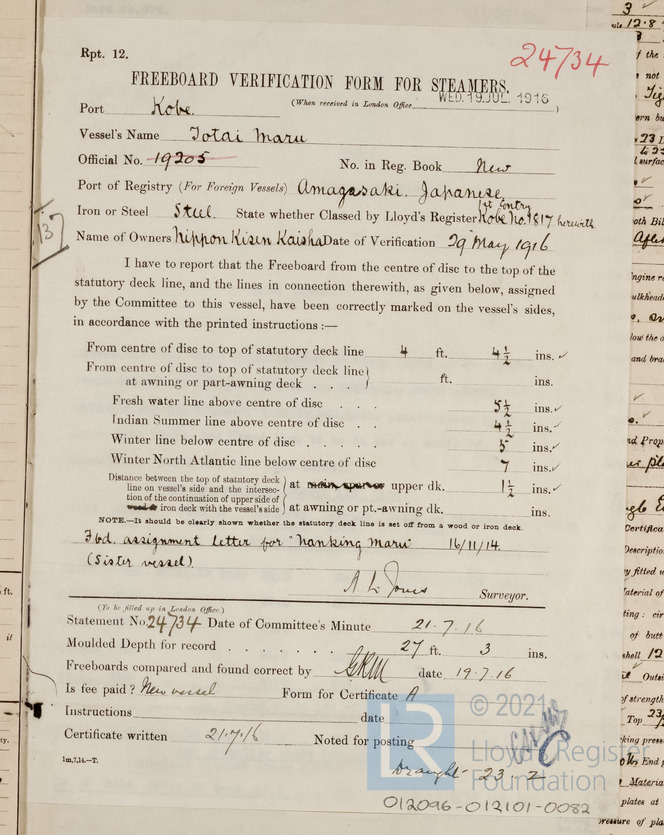 Rpt. 12.
24734
FREEBOARD VERIFICATION FORM FOR STEAMERS.
Port Kobe. (When received in London Office WED. 19 JUL. 1916)
Vessel's Name Totai Maru
Official No. 19205 No. in Reg. Book New
Port of Registry (For Foreign Vessels) Amagasaki. Japanese
1st Entry
Iron or Steel Steel. State whether Classed by Lloyd's Register Kobe No. 1817 herewith
13
Name of Owners Nippon Kisen Kaisha Date of Verification 29 May 1916
I have to report that the Freeboard from the centre of disc to the top of the
statutory deck line, and the lines in connection therewith, as given below, assigned
by the Committee to this vessel, have been correctly marked on the vessel's sides,
in accordance with the printed instructions :—
From centre of disc to top of statutory deck line 4 ft. 4½ ins. ✓
From centre of disc to top of statutory deck line
at awning or part-awning deck . . . ft. ins.
Fresh water line above centre of disc . . . 5½ ins. ✓
Indian Summer line above centre of disc . . 4½ ins. ✓
Winter line below centre of disc . . . . . 5 ins. ✓
Winter North Atlantic line below centre of disc 7 ins. ✓
Distance between the top of statutory deck
line on vessel's side and the intersec-
tion of the continuation of upper side of
wood or iron deck with the vessel's side
at main spar or upper dk. 1½ ins. ✓
at awning or pt.-awning dk. ins.
NOTE.—It should be clearly shown whether the statutory deck line is set off from a wood or iron deck.
Fbd. assignment letter for "Nanking Maru" 16/11/14.
(Sister vessel)
A L Jones Surveyor.
(To be filled up in London Office.)
Statement No. 24734 Date of Committee's Minute 21.7.16
Moulded Depth for record . . . . . . . 27 ft. 3 ins.
Freeboards compared and found correct by GRM date 19.7.16
Is fee paid? New vessel Form for Certificate A
Instructions date
Certificate written 21.7.16 Noted for posting
1m,7,14.—T.
Draught 23.2
© 2021
LR
Lloyd's Register
Foundation
012096-012101-0082